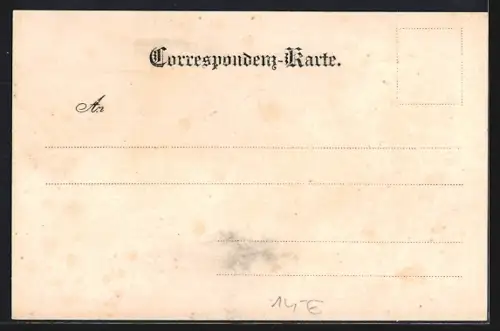 Correspondenz-Karte.
An
14,-€